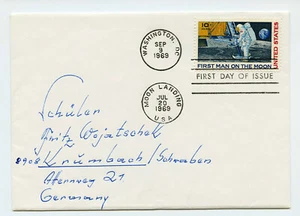 WASHINGTON, DC
SEP
9
1969
10c
UNITED STATES
FIRST MAN ON THE MOON
FIRST DAY OF ISSUE
MOON LANDING
JUL
20
1969
USA
Schüler
Fritz Wojatschek
8908 Krumbach/Schwaben
Germany